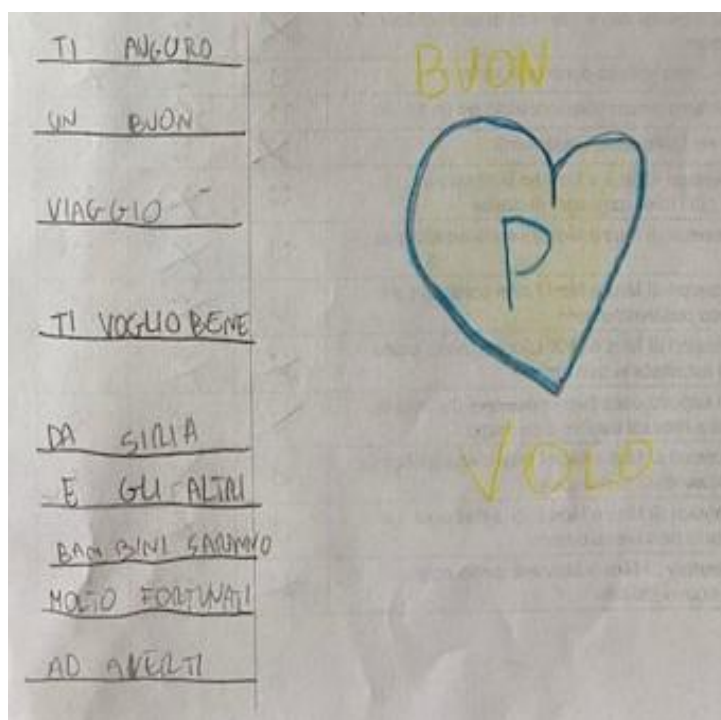 TI AUGURO
UN BUON
VIAGGIO
TI VOGLIO BENE
DA SIRIA
E GLI ALTRI
BAMBINI SARANNO
MOLTO FORTUNATI
AD AVERTI
BUON
P
VOLO